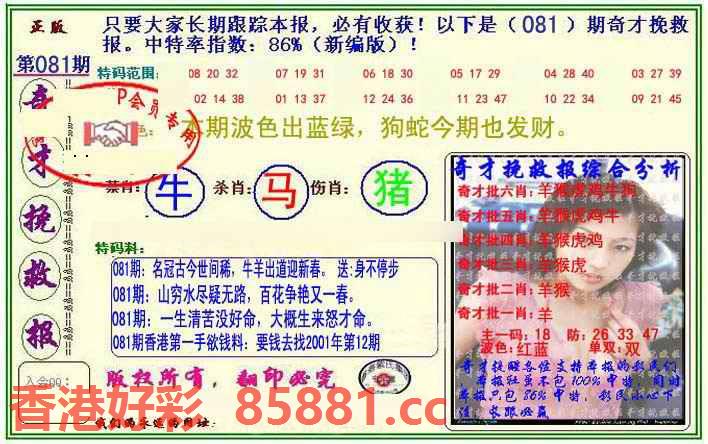 正版
只要大家长期跟踪本报，必有收获！以下是（081）期奇才挽救
报。中特率指数：86%（新编版）！
第081期
特码范围：
08 20 32 07 19 31 06 18 30 05 17 29 04 28 40 03 27 39
02 14 38 01 13 37 12 24 36 11 23 47 10 22 34 09 21 45
P会员专用
本期波色出蓝绿，狗蛇今期也发财。
奇
才
挽
救
报
禁肖：牛 杀肖：马 伤肖：猪
特码料：
081期：名冠古今世间稀，牛羊出道迎新春。送：身不停步
081期：山穷水尽疑无路，百花争艳又一春。
081期：一生清苦没好命，大概生来怒才命。
081期香港第一手欲钱料：要钱去找2001年第12期
奇才挽救报综合分析
奇才批六肖：羊猴虎鸡牛狗
奇才批五肖：羊猴虎鸡牛
奇才批四肖：羊猴虎鸡
奇才批三肖：羊猴虎
奇才批二肖：羊猴
奇才批一肖：羊
主一码：18 防：26 33 47
波色：红蓝 单双：双
奇才提醒各位支持本报的彩民们
本报社虽不包100%中特，同时
本报只包86%中特，彩民小心下
注，求跟必赢
版权所有，翻印必究
香港好彩 85881.cc
我们的永远的用址：